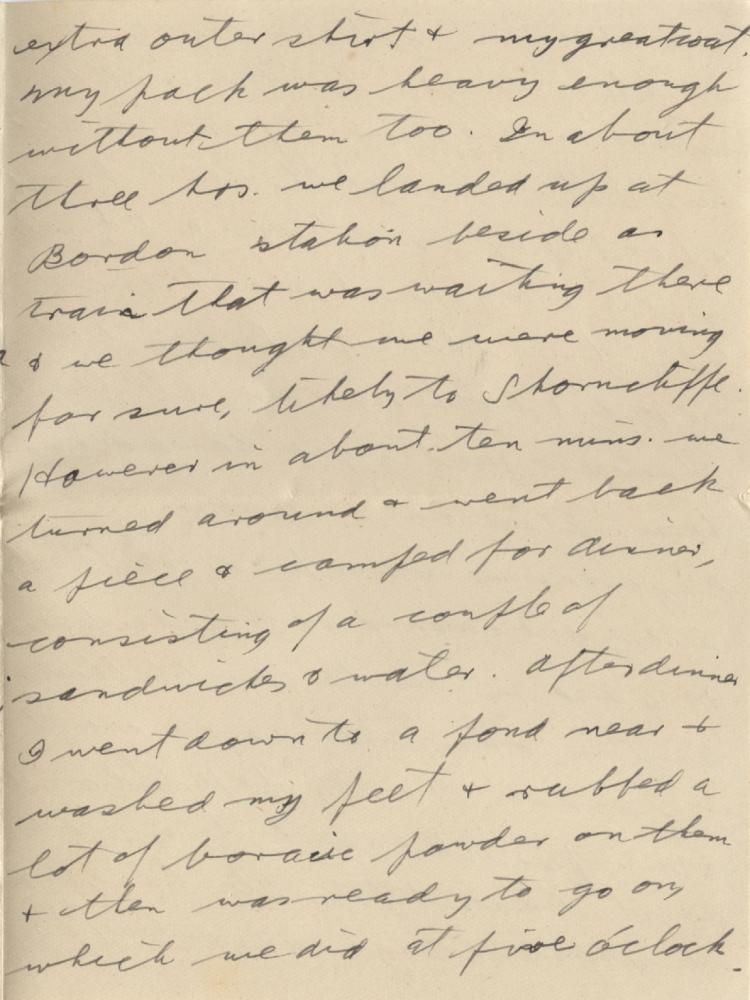 extra outer shirt & my greatcoat.
My pack was heavy enough
without them too. In about
three hrs. we landed up at
Bordon station beside a
train that was waiting there
& we thought we were moving
for sure, likely to Shorncliffe.
However in about ten mins. we
turned around & went back
a piece & camped for dinner,
consisting of a couple of
sandwiches & water. After dinner
I went down to a pond near &
washed my feet & rubbed a
lot of boracic powder on them
& then was ready to go on,
which we did at five o'clock.